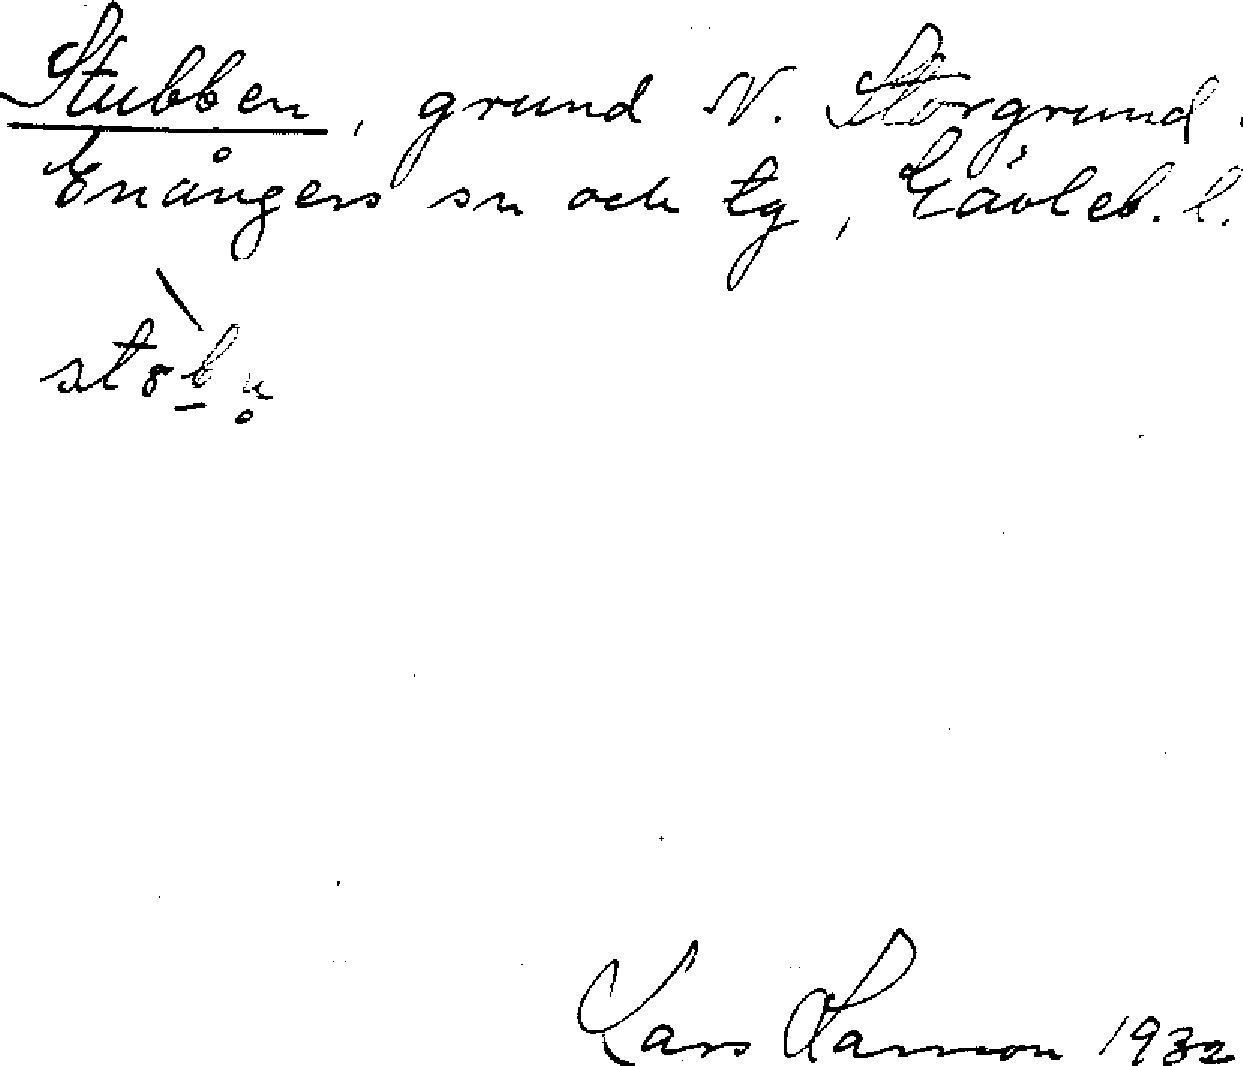 Stubben, grund N. Storgrund.
Enångers sn och tg, Gävleb. l.
Lars Larsson 1932